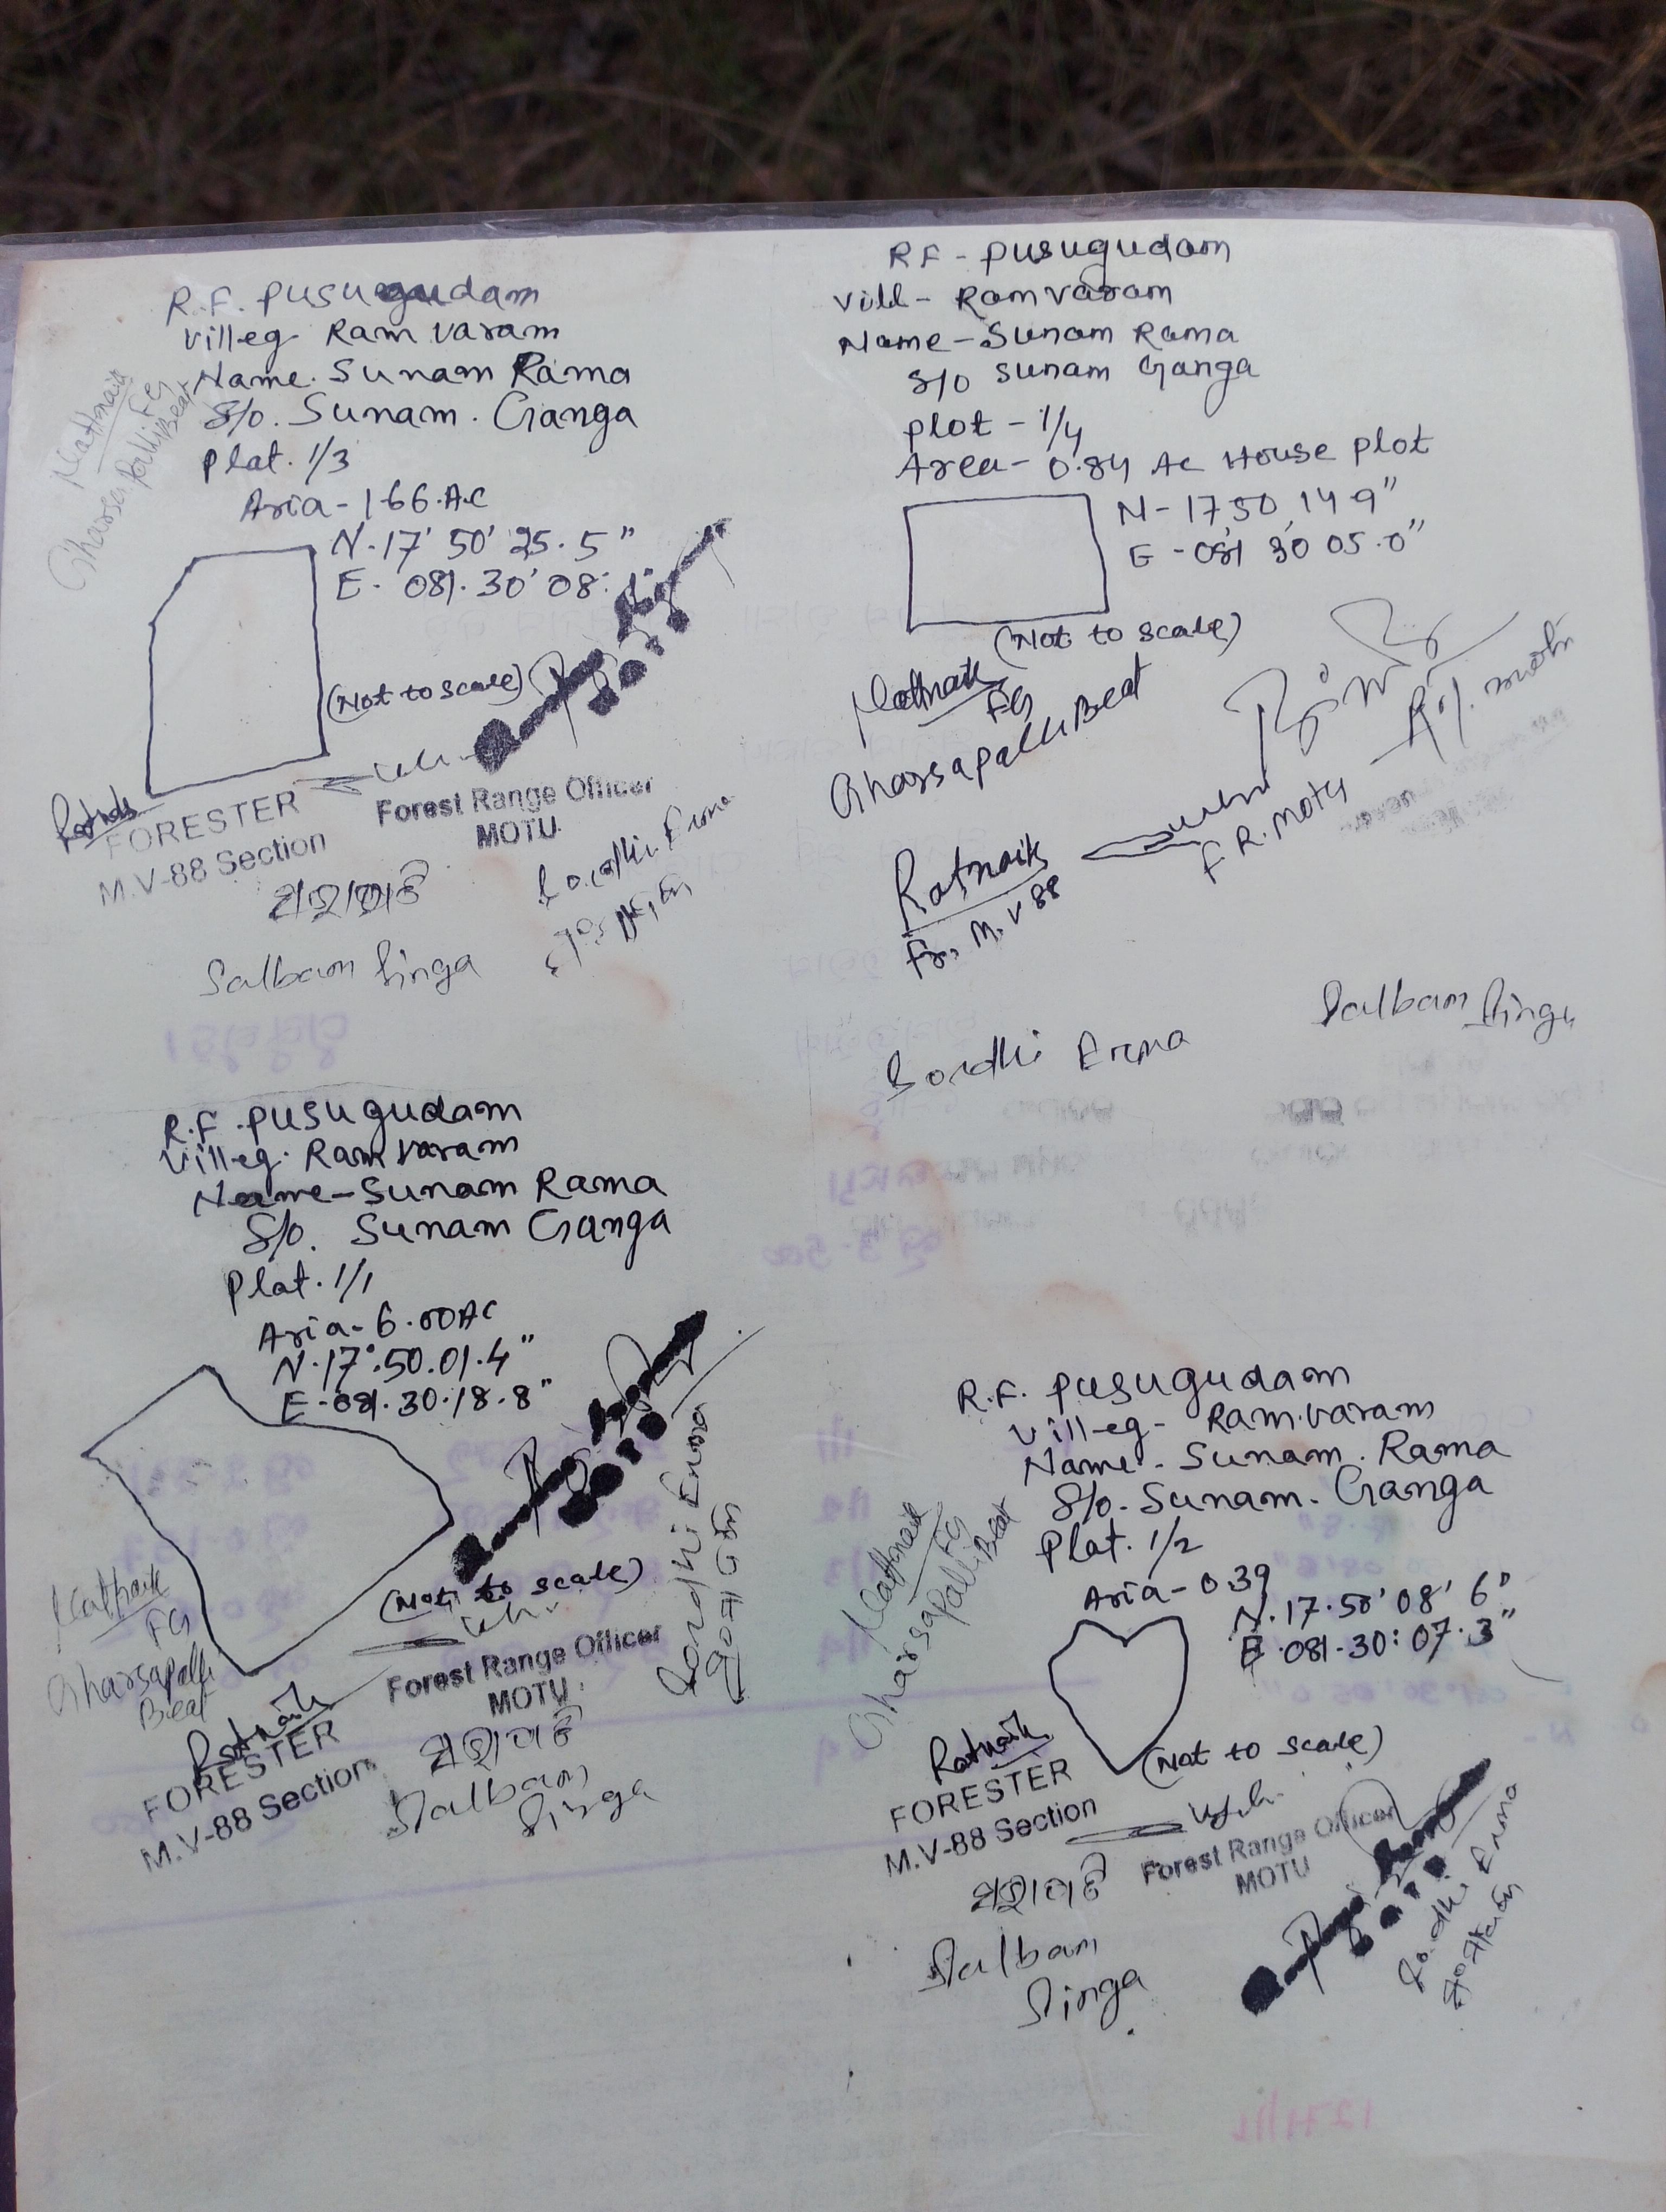 R.F. Pusugudam
Villeg- Ram varam
Name. Sunam Rama
S/o. Sunam. Ganga
Plat. 1/3
Aria- 1.66.AC
N.17' 50' 25.5"
E- 081.30' 08:
(Not to scale)
FG
Gharsapalli Beat
FORESTER
M.V-88 Section
Forest Range Officer
MOTU
Sodhi Erma
Salbam Singa
RF - Pusugudam
Vill - Ramvaram
Name - Sunam Rama
S/o Sunam Ganga
plot - 1/4
Area - 0.84 AC House plot
N - 17,50,14 9"
E - 081 30 05.0"
(Not to scale)
FG
Gharsapalli Beat
Ratnaik
Fr, M.V 88
F.R. Motu
Sordhi Erma
Salbam Singa
R.F. Pusugudam
Villeg. Ramvaram
Name - Sunam Rama
S/o. Sunam Ganga
Plat. 1/1
Aria- 6.00AC
N.17°.50.01.4"
E-081.30.18.8"
(Not to scale)
FG
Gharsapalli
Beat
Ratnaik
FORESTER
M.V-88 Section
Forest Range Officer
MOTU
Sordhi Erma
Salbam
Singa
R.F. Pusugudam
Villeg- Ram.varam
Name. Sunam. Rama
S/o. Sunam. Ganga
Plat. 1/2
Aria - 0.39
N.17.50' 08' 6"
E.081-30:07.3"
(Not to scale)
FG
Gharsapalli Beat
Ratnaik
FORESTER
M.V-88 Section
Forest Range Officer
MOTU
Sodhi Erma
Salbam
Singa